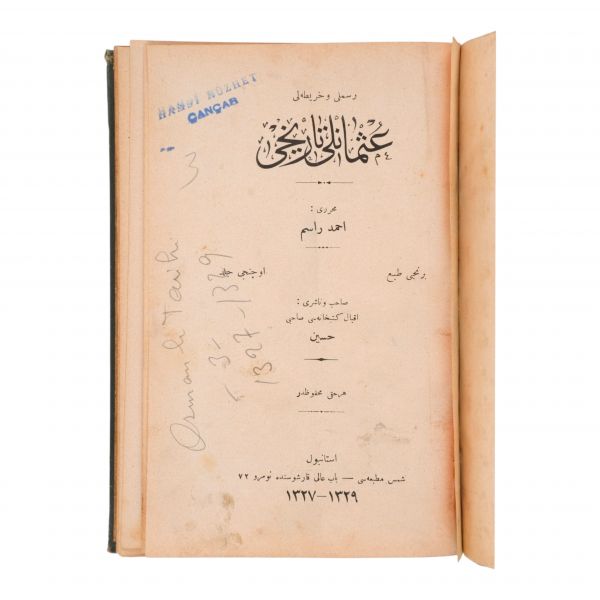 HAMDİ NÜZHET
ÇANÇAR
رسملی و خریطه‌لی
عثمانلی تاریخی
محرری :
احمد راسم
برنجی طبع
اوچنجی جلد
صاحب و ناشری :
اقبال کتبخانه‌سی صاحبی
حسین
هر حقی محفوظدر
استانبول
شمس مطبعه‌سی — باب عالی قارشوسنده نومرو ٧٢
١٣٢٧–١٣٢٩
3
Osmanlı Tarihi
- 3 -
1327-1329